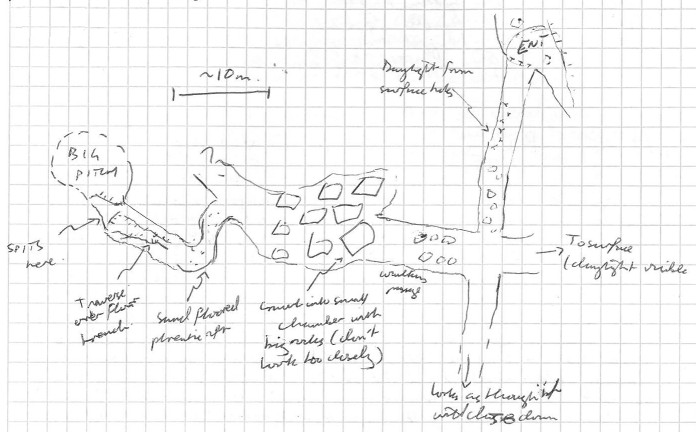 ENT
Daylight from
surface holes
~10m.
BIG
PITCH
?
SPITS
here.
Traverse
over floor
trench.
Sand floored
phreatic
Crawl into small
chamber with
big rocks (don't
look too closely)
walking
passage
→ To surface
(daylight visible
looks as though it
will close down